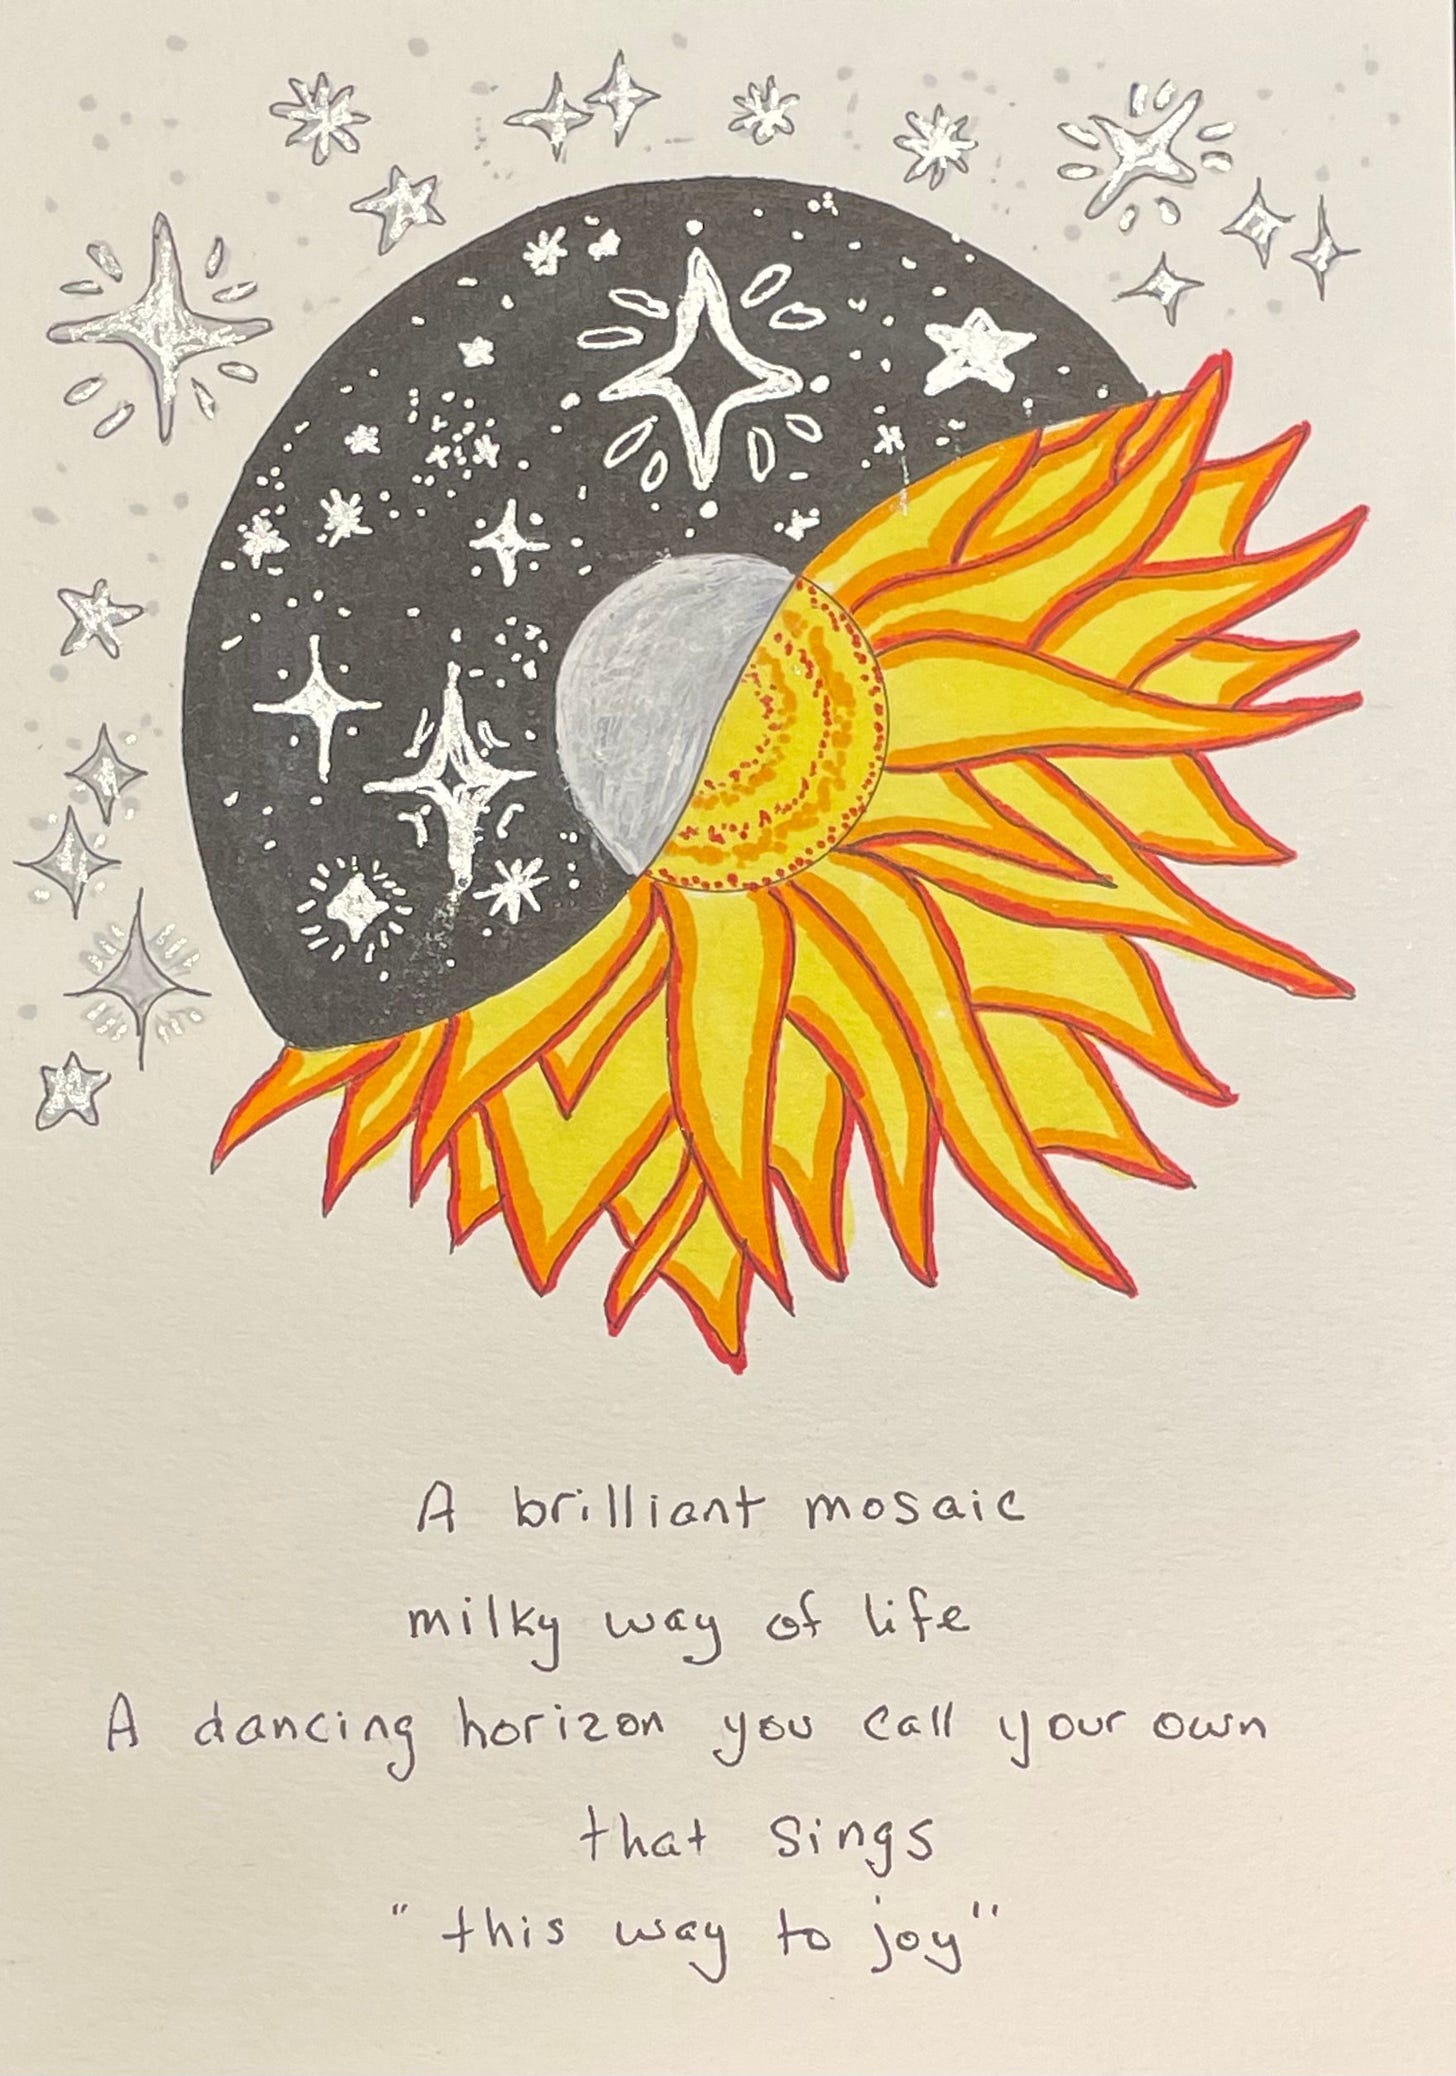 A brilliant mosaic
milky way of life
A dancing horizon you call your own
that sings
"this way to joy"